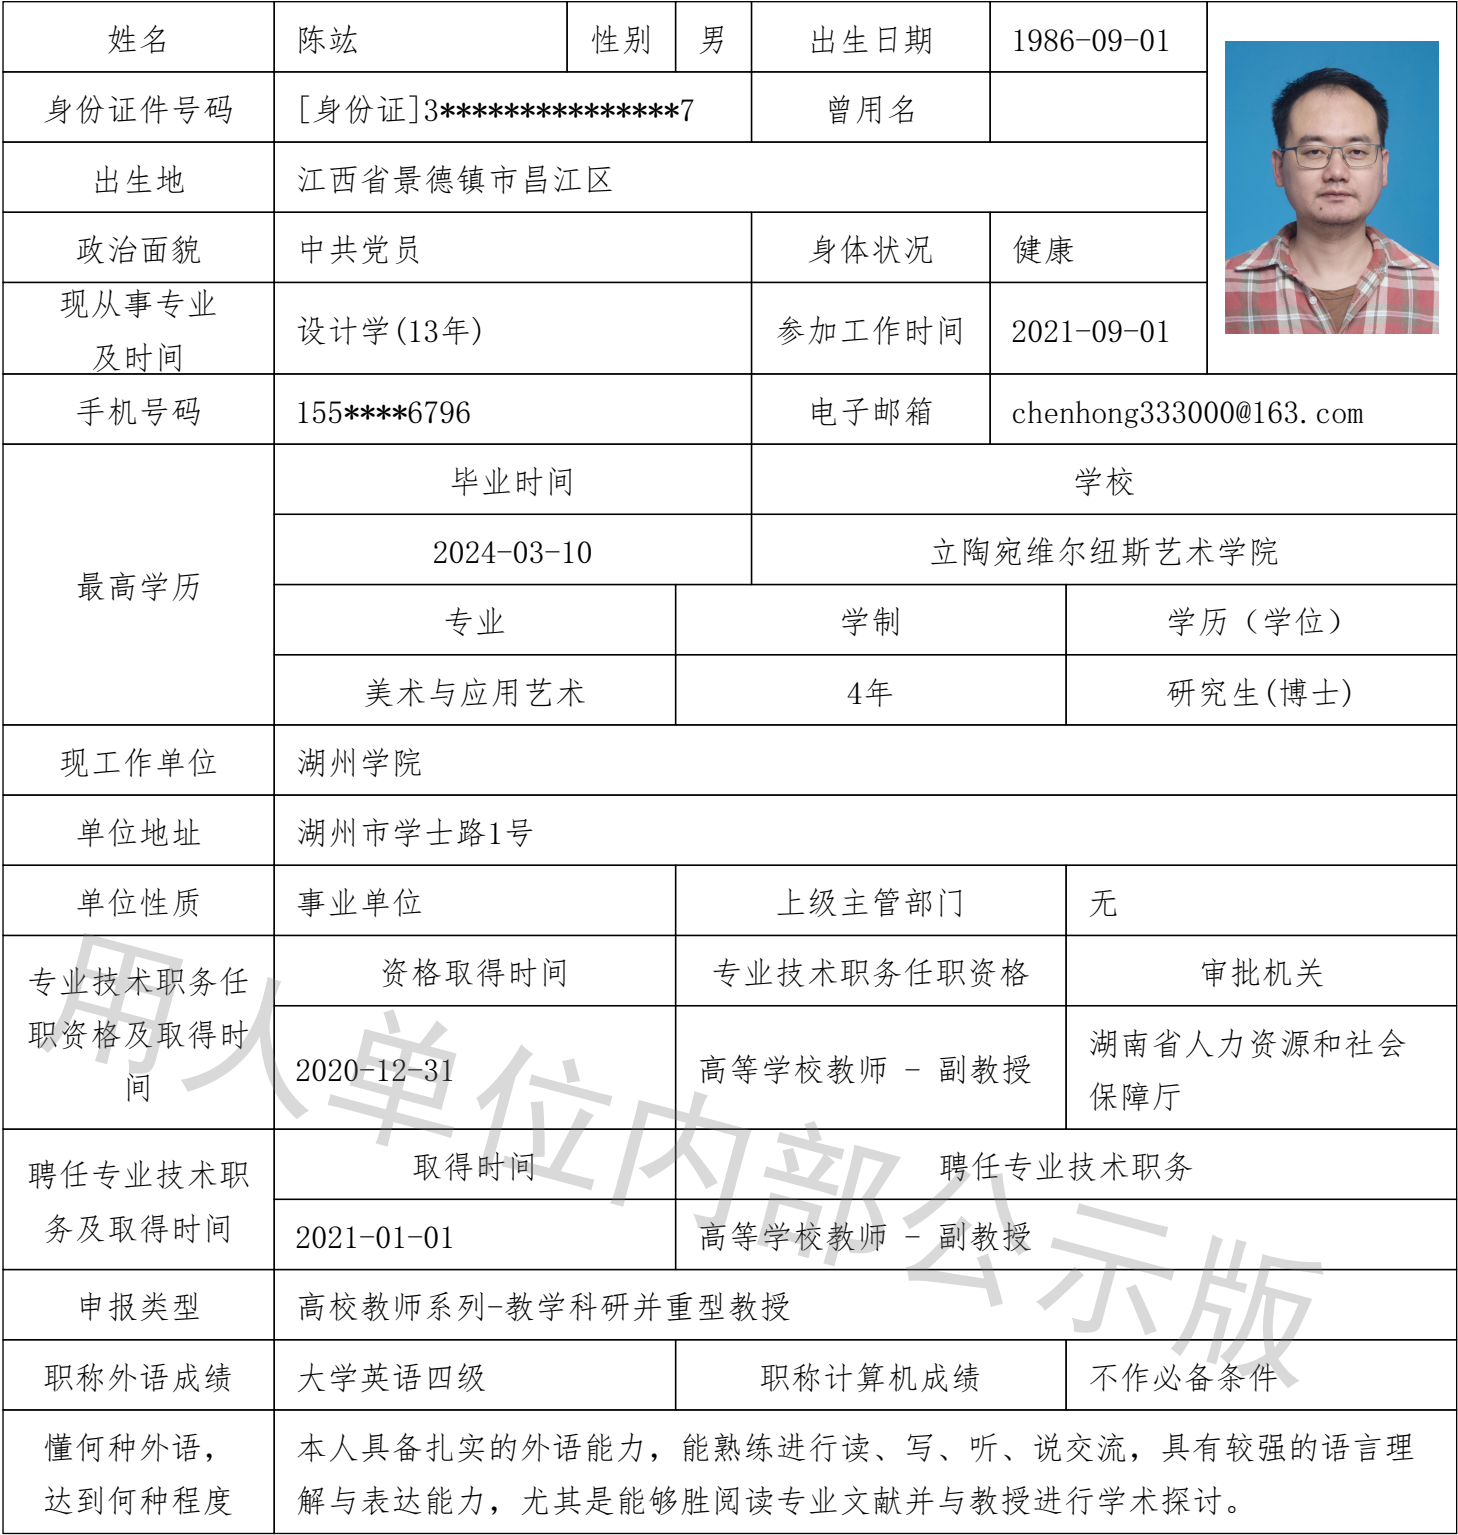 姓名 陈竑 性别 男 出生日期 1986-09-01
身份证件号码 [身份证]3***************7 曾用名
出生地 江西省景德镇市昌江区
政治面貌 中共党员 身体状况 健康
现从事专业
及时间
设计学(13年) 参加工作时间 2021-09-01
手机号码 155****6796 电子邮箱 chenhong333000@163.com
最高学历
毕业时间 学校
2024-03-10 立陶宛维尔纽斯艺术学院
专业 学制 学历（学位）
美术与应用艺术 4年 研究生(博士)
现工作单位 湖州学院
单位地址 湖州市学士路1号
单位性质 事业单位 上级主管部门 无
专业技术职务任
职资格及取得时
间
资格取得时间 专业技术职务任职资格 审批机关
2020-12-31 高等学校教师 - 副教授
湖南省人力资源和社会
保障厅
聘任专业技术职
务及取得时间
取得时间 聘任专业技术职务
2021-01-01 高等学校教师 - 副教授
申报类型 高校教师系列-教学科研并重型教授
职称外语成绩 大学英语四级 职称计算机成绩 不作必备条件
懂何种外语，
达到何种程度
本人具备扎实的外语能力，能熟练进行读、写、听、说交流，具有较强的语言理
解与表达能力，尤其是能够胜阅读专业文献并与教授进行学术探讨。
用人单位内部公示版